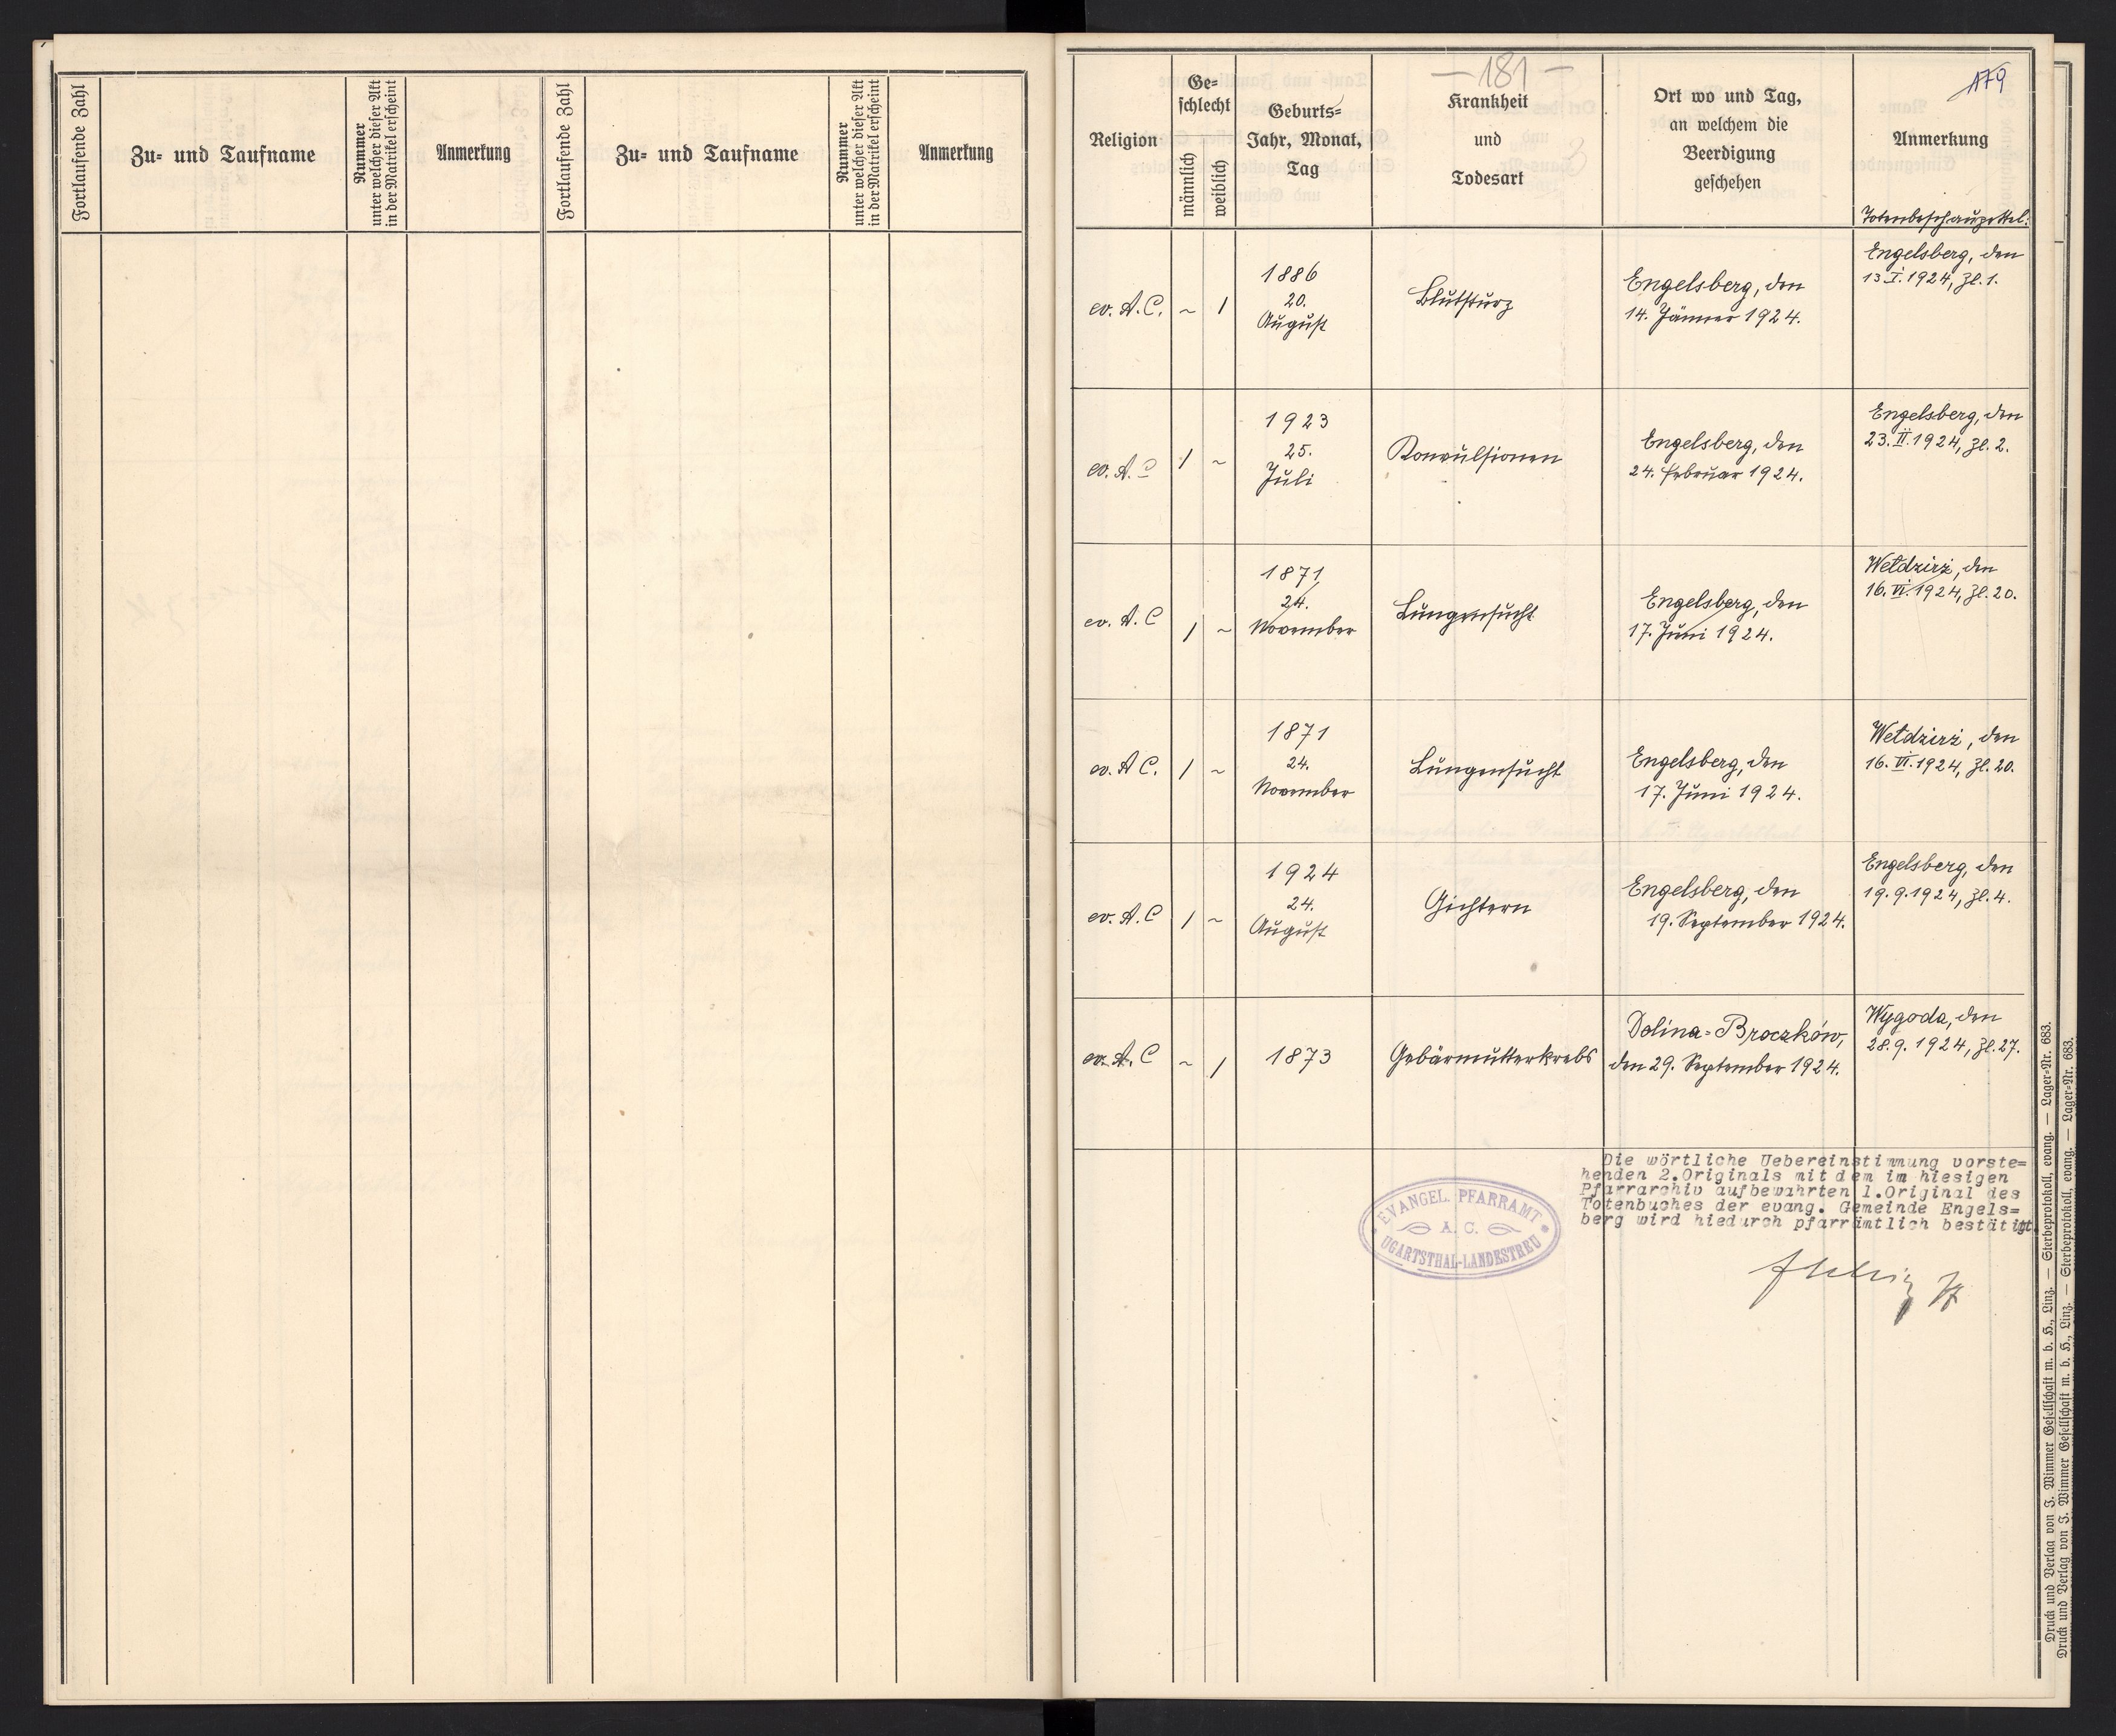 Fortlaufende Zahl
Zu- und Taufname
Nummer
unter welcher dieser Akt
in der Matrikel erscheint
Anmerkung
Fortlaufende Zahl
Zu- und Taufname
Nummer
unter welcher dieser Akt
in der Matrikel erscheint
Anmerkung
— 181 —
179
Religion
Ge=
schlecht
männlich
weiblich
Geburts=
Jahr, Monat,
Tag
Krankheit
und
Todesart
Ort wo und Tag,
an welchem die
Beerdigung
geschehen
Anmerkung
Totenbeschauzettel:
ev. A. C. ~ 1
1886
20.
August
Blutsturz
Engelsberg, den
14. Jänner 1924.
Engelsberg, den
13.I.1924, Zl. 1.
ev. A. C 1 ~
1923
25.
Juli
Konvulsionen
Engelsberg, den
24. Februar 1924.
Engelsberg, den
23. II. 1924, Zl. 2.
ev. A. C 1 ~
1871
24.
November
Lungensucht
Engelsberg, den
17. Juni 1924.
Wełdzirz, den
16. VI. 1924, Zl. 20.
ev. A C. 1 ~
1871
24.
November
Lungensucht
Engelsberg, den
17. Juni 1924.
Wełdzirz, den
16. VI. 1924, Zl. 20.
ev. A. C 1 ~
1924
24.
August
Gichtern
Engelsberg, den
19. September 1924.
Engelsberg, den
19. 9. 1924, Zl. 4.
ev. A. C ~ 1
1873
Gebärmutterkrebs
Dolina=Broczków,
den 29. September 1924.
Wygoda, den
28. 9. 1924, Zl. 27.
Die wörtliche Uebereinstimmung vorste=
henden 2.Originals mit dem im hiesigen
Pfarrarchiv aufbewahrten 1.Original des
Totenbuches der evang. Gemeinde Engels=
berg wird hiedurch pfarrämtlich bestätigt.
EVANGEL. PFARRAMT
A. C.
UGARTSTHAL-LANDESTREU
Druck und Verlag von J. Wimmer Gesellschaft m. b. H., Linz. — Sterbeprotokoll, evang. — Lager=Nr. 683.
Druck und Verlag von J. Wimmer Gesellschaft m. b. H., Linz. — Sterbeprotokoll, evang. — Lager=Nr. 683.